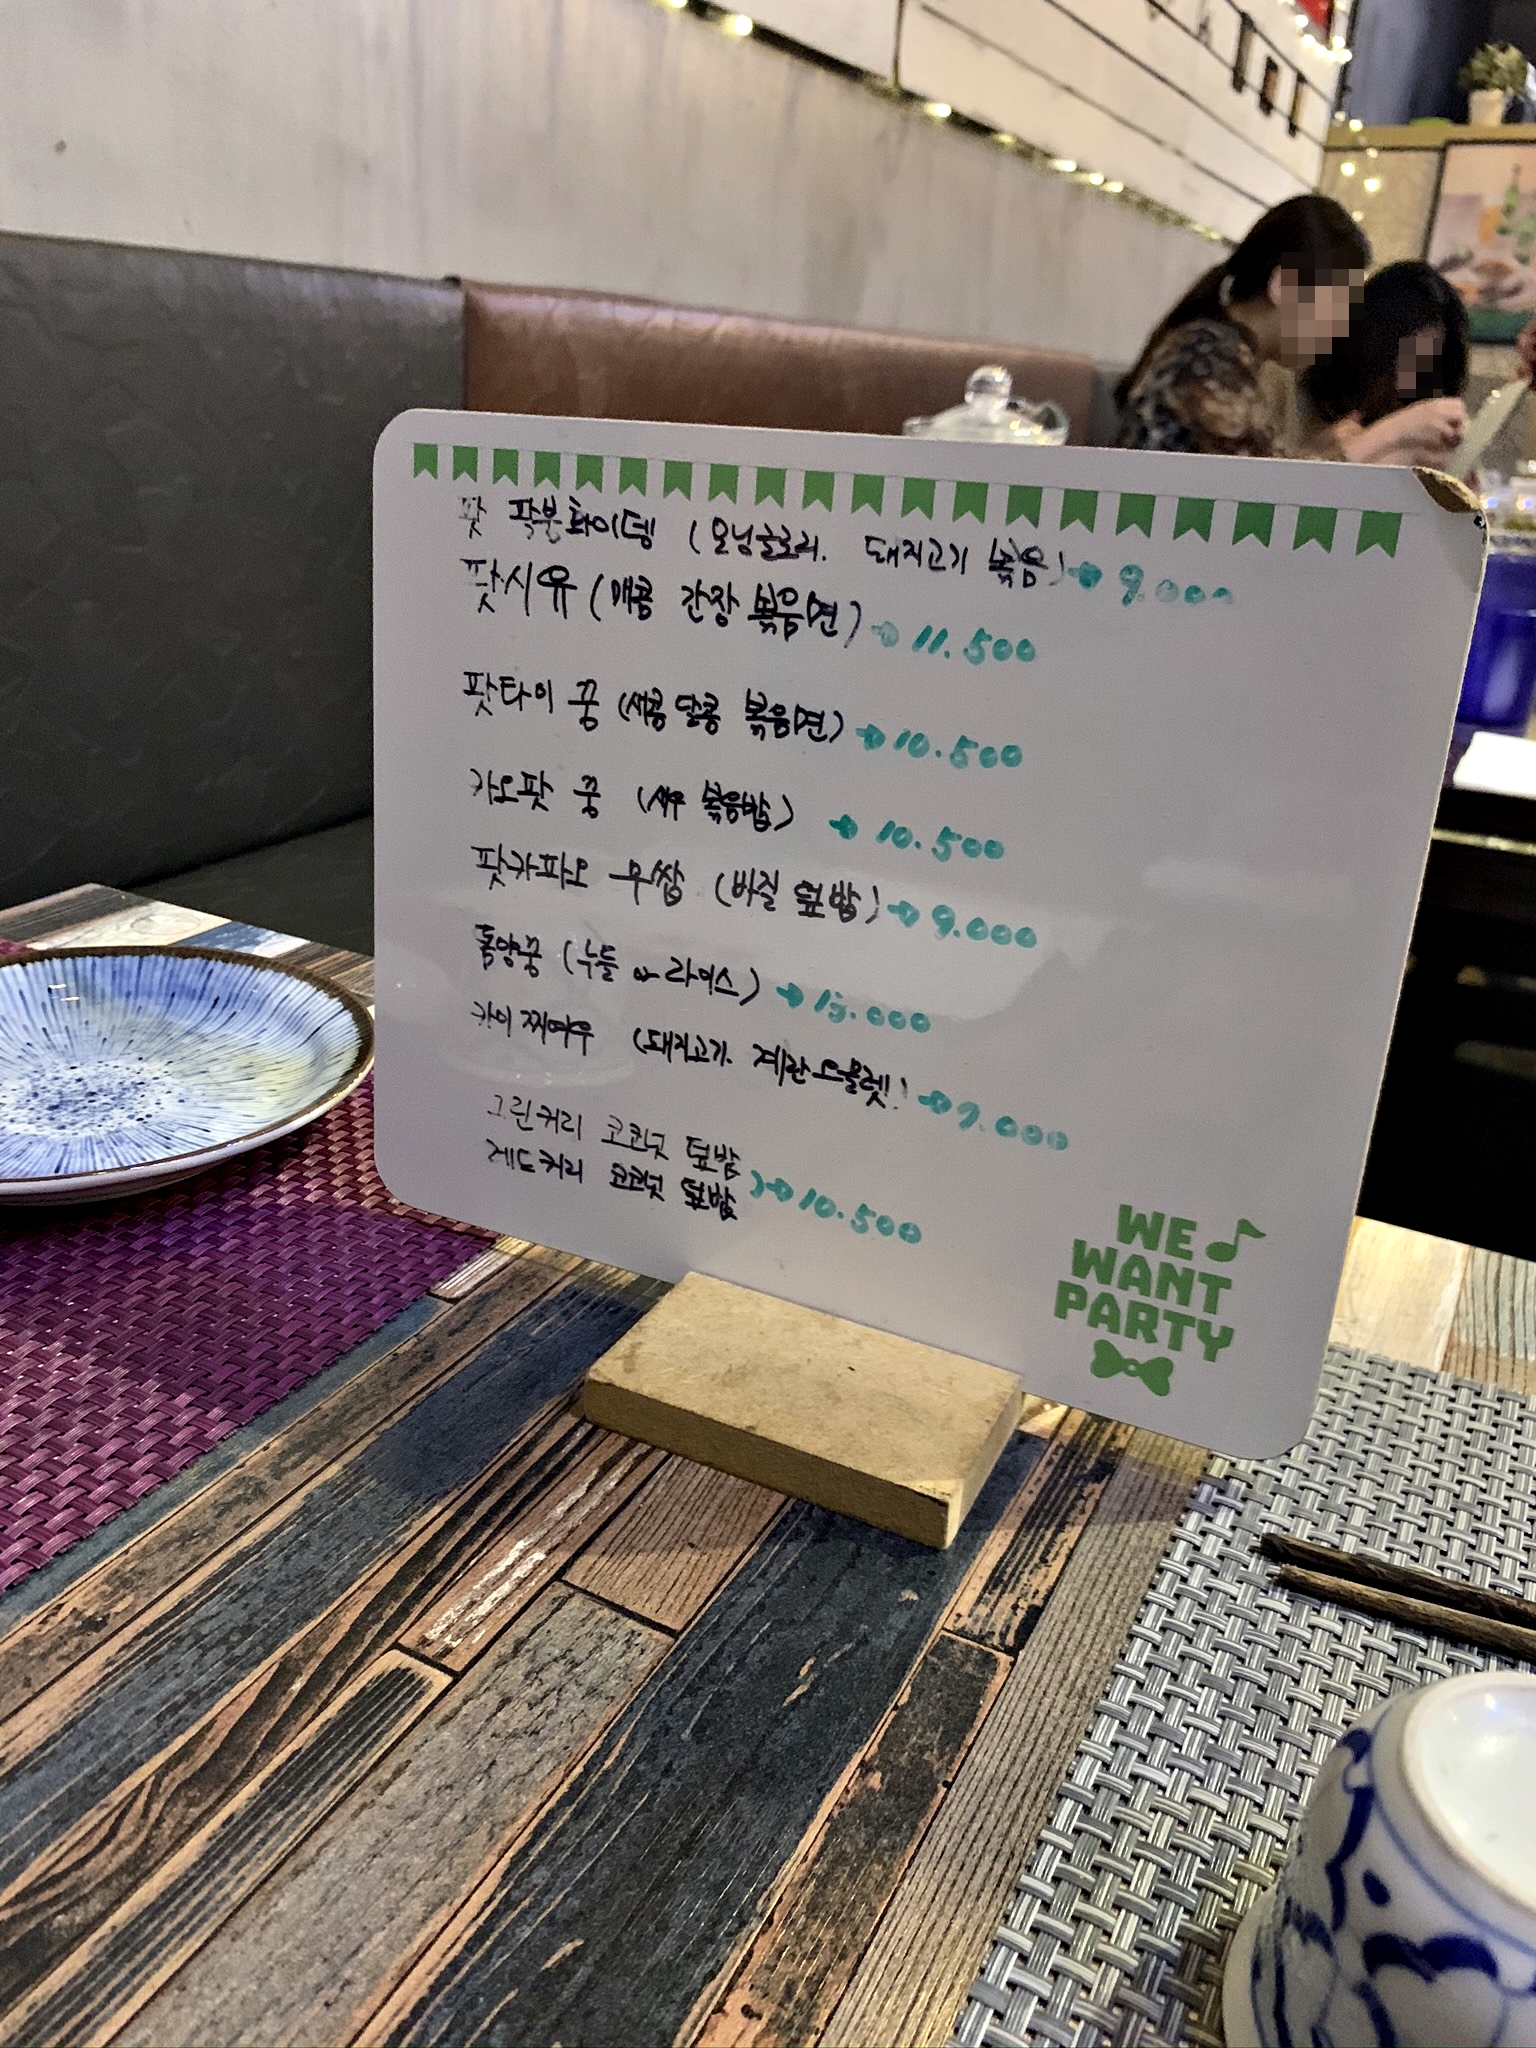 팟 팍붕화이뎅 (모닝글로리. 돼지고기 볶음) → 9.000
팟시유 (매콤 간장 볶음면) → 11.500
팟타이 꿍 (새콤달콤 볶음면) → 10.500
카오팟 꿍 (새우 볶음밥) → 10.500
팟카파오 무쌉 (바질 덮밥) → 9.000
똠양꿍 (누들 or 라이스) → 15.000
카이찌여우 (돼지고기. 계란오믈렛) → 9.000
그린커리 코코넛 덮밥
레드커리 코코넛 덮밥 ) → 10.500
WE
WANT
PARTY